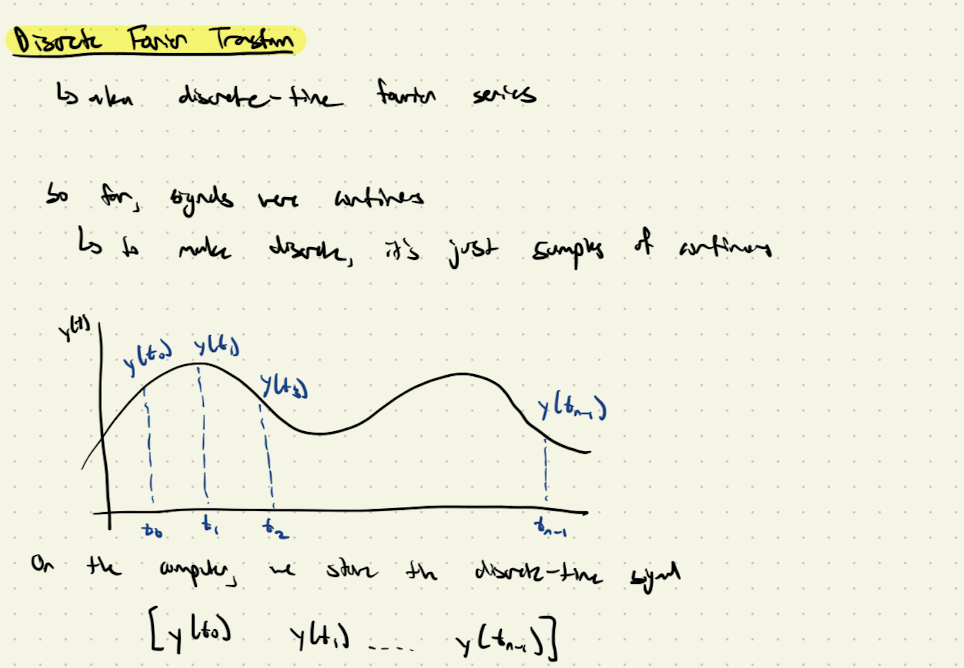 Discrete Fourier Transform
↳ aka discrete-time fourier series
So far, signals were continuous
↳ to make discrete, it's just samples of continuous
y(t)
y(t₀) y(t₁)
y(t₂)
y(tₙ₋₁)
t₀ t₁ t₂ tₙ₋₁
On the computer, we store the discrete-time signal
[y(t₀) y(t₁) ..... y(tₙ₋₁)]